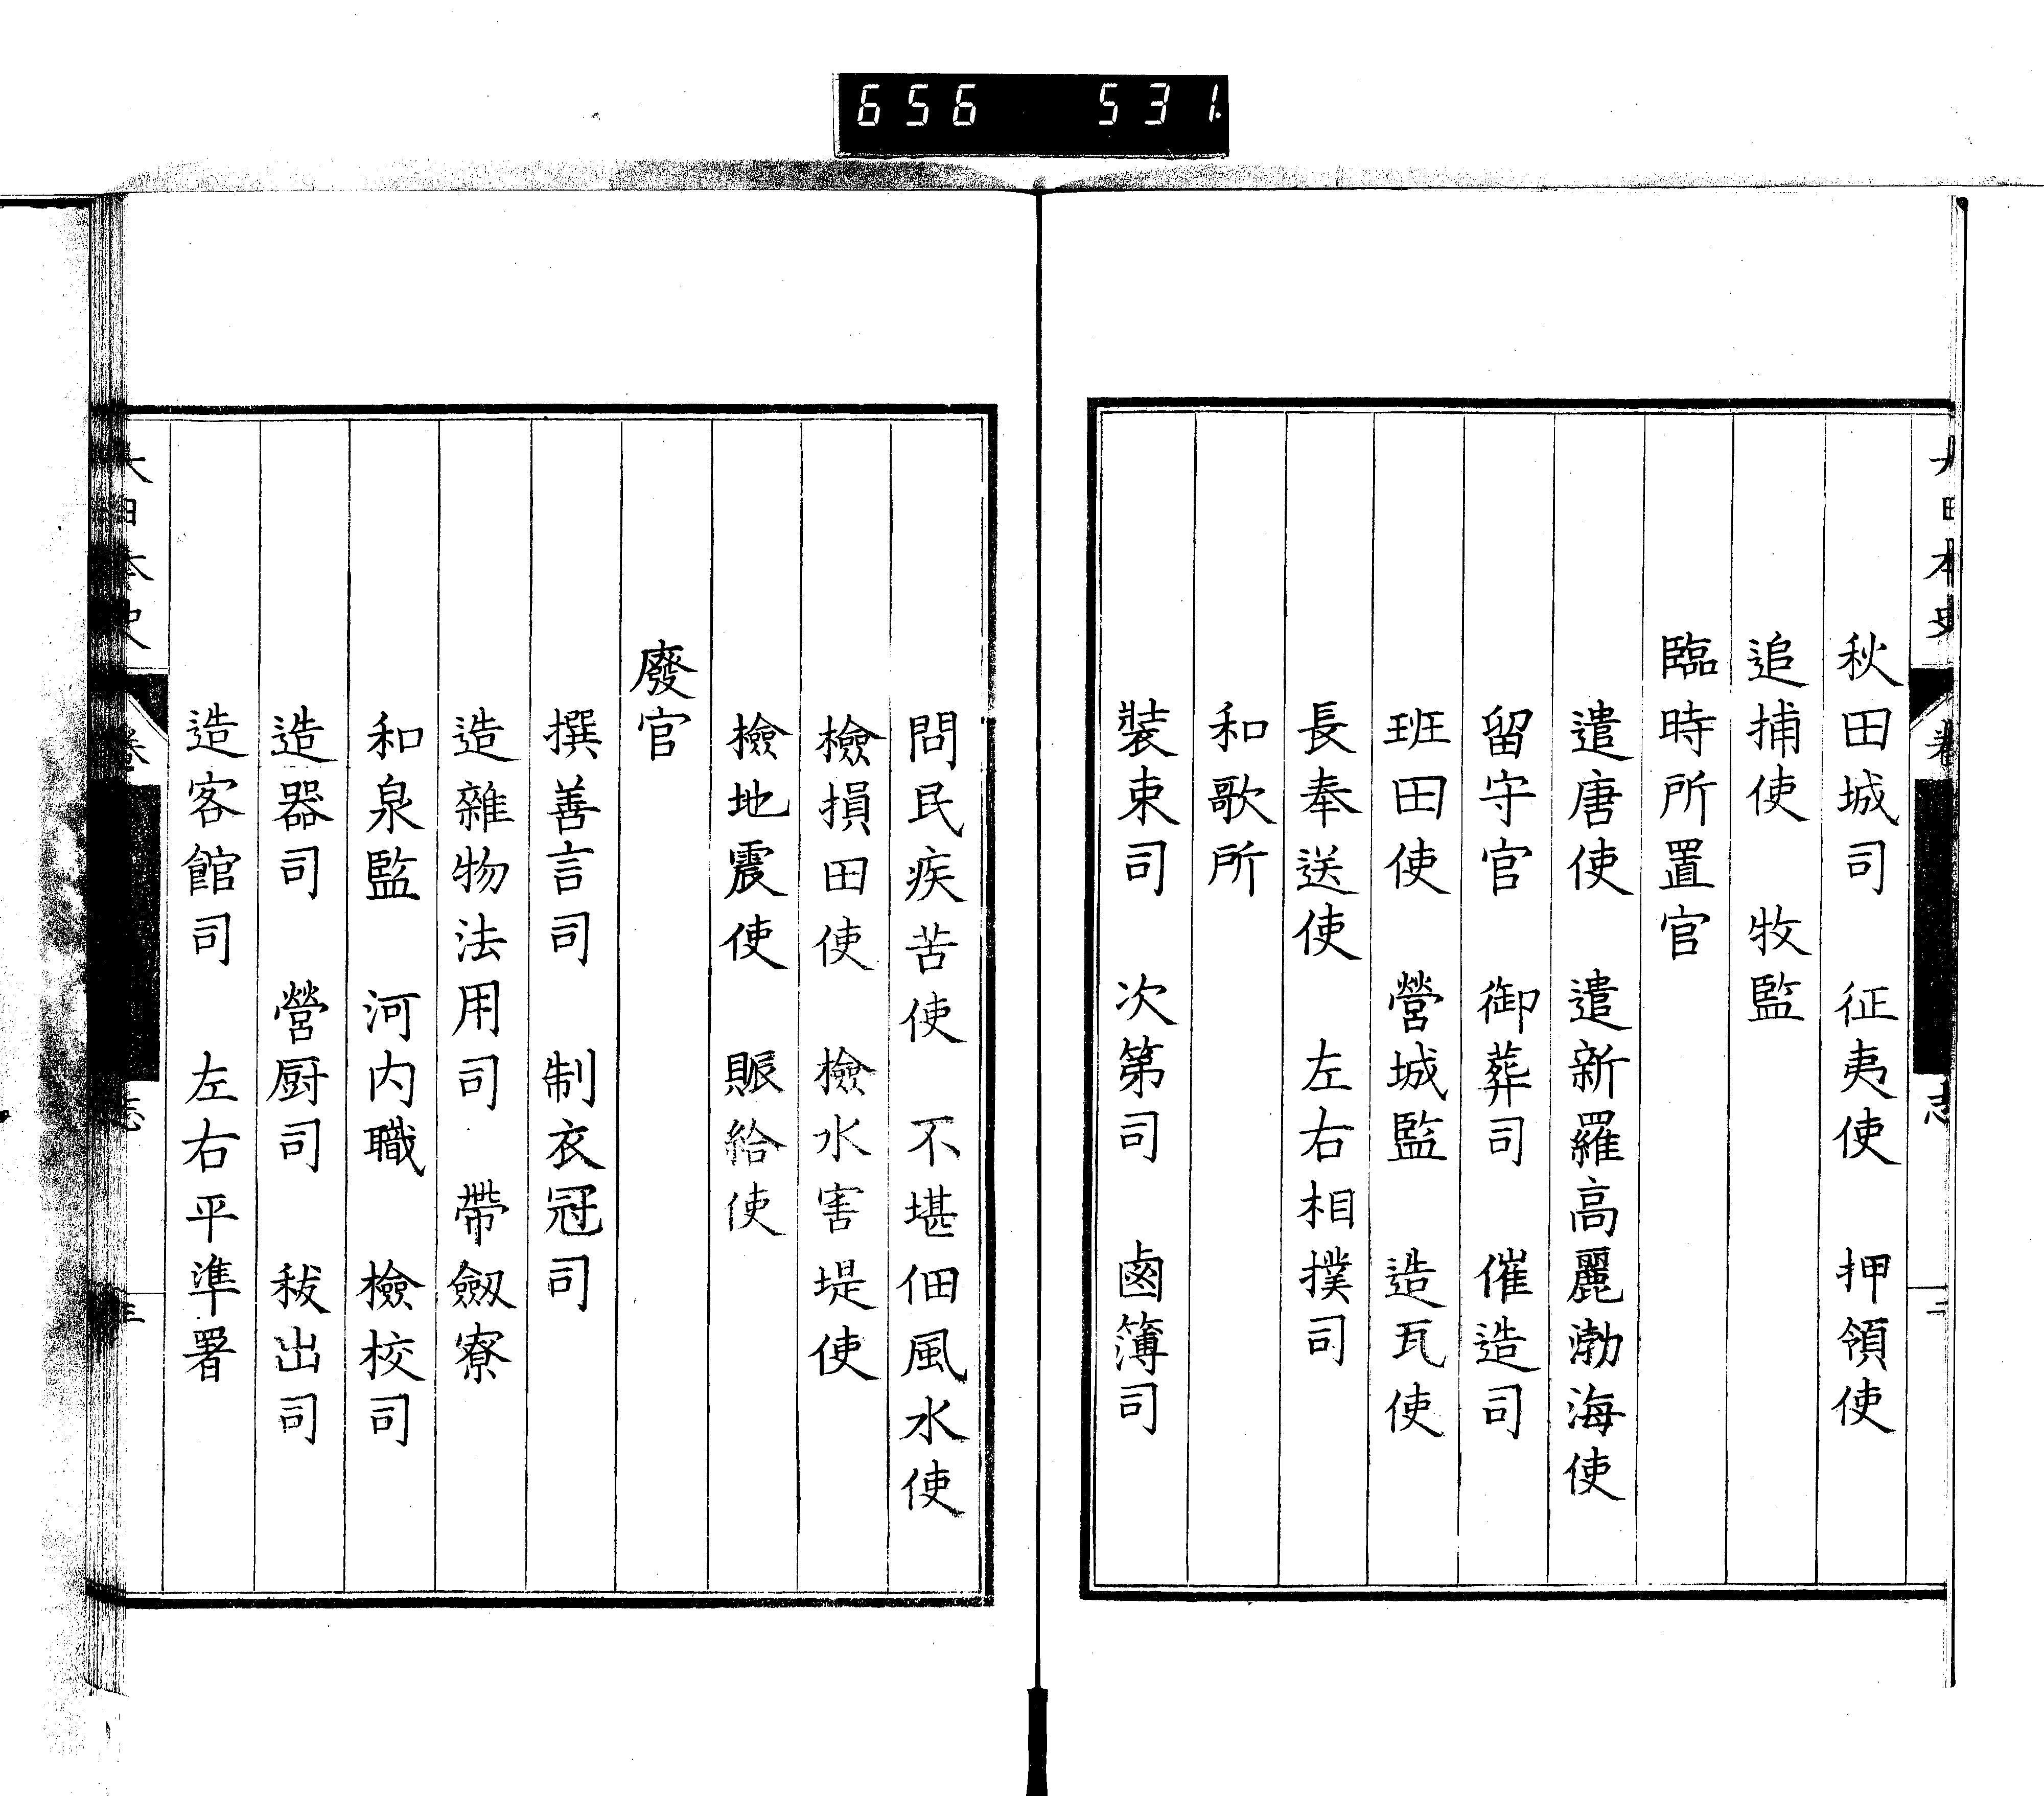 656 531
秋田城司　征夷使　押領使
追捕使　牧監
臨時所置官
遣唐使　遣新羅高麗渤海使
留守官　御葬司　催造司
班田使　營城監　造瓦使
長奉送使　左右相撲司
和歌所
裝束司　次第司　鹵簿司
問民疾苦使　不堪佃風水使
檢損田使　檢水害堤使
檢地震使　賑給使
廢官
撰善言司　制衣冠司
造雜物法用司　帶劔寮
和泉監　河内職　檢校司
造器司　營厨司　秡出司
造客館司　左右平準署
大日本史